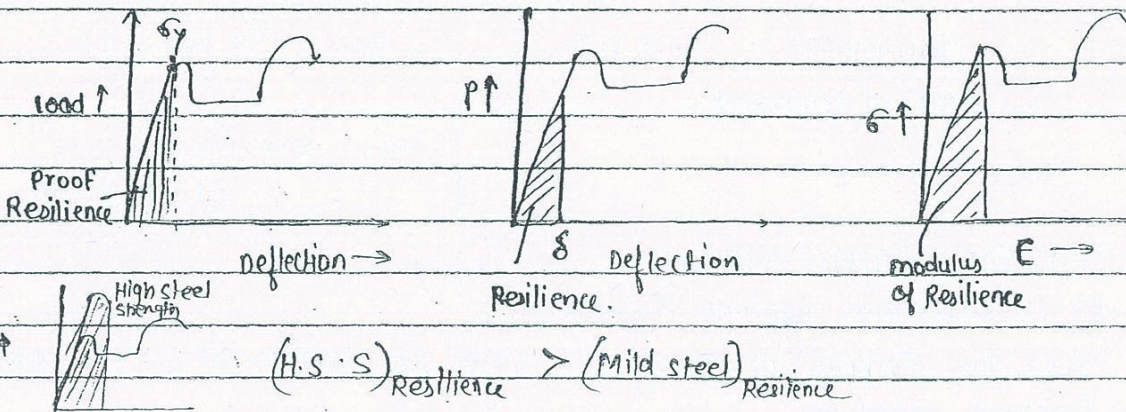 σy
Load ↑
Proof
Resilience
Deflection →
P↑
δ
Deflection
Resilience.
σ ↑
modulus
of Resilience
E →
High steel
strength
↑
(H.S.S)Resilience > (Mild steel)Resilience